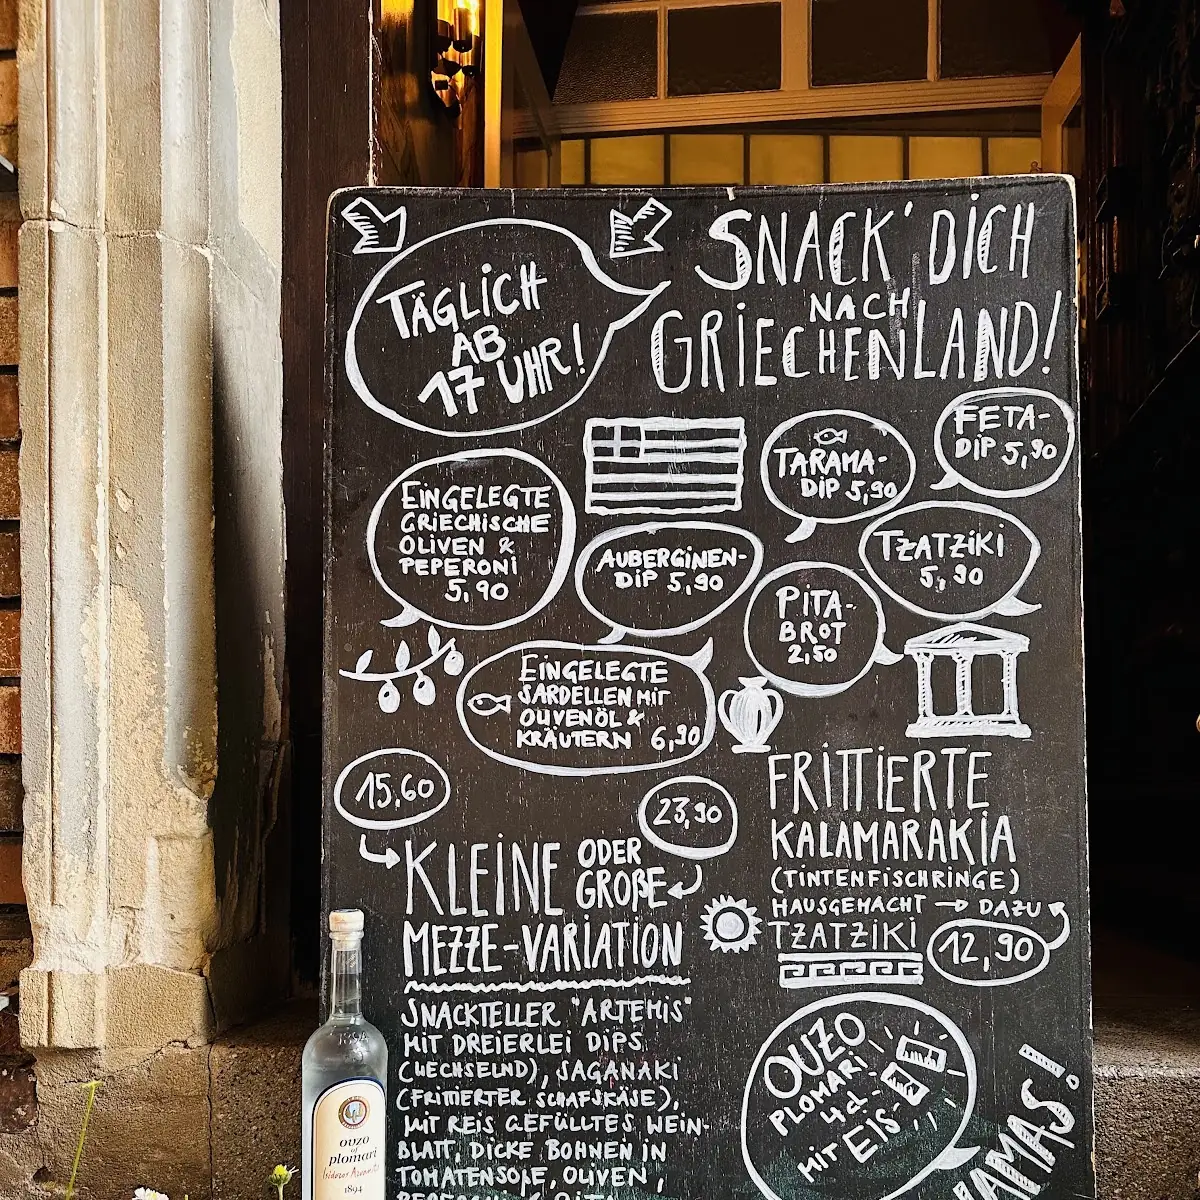 TÄGLICH
AB
17 UHR!
SNACK' DICH
NACH
GRIECHENLAND!
FETA-
DIP 5,90
TARAMA-
DIP 5,90
EINGELEGTE
GRIECHISCHE
OLIVEN &
PEPERONI
5,90
AUBERGINEN-
DIP 5,90
TZATZIKI
5,90
PITA-
BROT
2,50
EINGELEGTE
SARDELLEN MIT
OLIVENÖL &
KRÄUTERN 6,90
15,60
23,90
KLEINE ODER
GROßE
MEZZE-VARIATION
SNACKTELLER "ARTEMIS"
MIT DREIERLEI DIPS
(WECHSELND), SAGANAKI
(FRITIERTER SCHAFSKÄSE),
MIT REIS GEFÜLLTES WEIN-
BLATT, DICKE BOHNEN IN
TOMATENSOßE, OLIVEN,
FRITTIERTE
KALAMARAKIA
(TINTENFISCHRINGE)
HAUSGEMACHT → DAZU
TZATZIKI
12,90
OUZO
PLOMARI
4 cl.
MIT EIS
JAMAS!
ouzo
of
plomari
Isidoros Arvanitis
1894